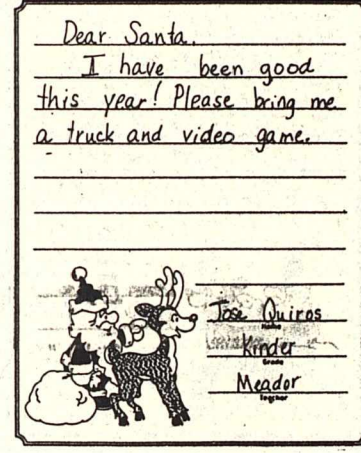 Dear Santa.
I have been good
this year! Please bring me
a truck and video game.
Jose Quiros
Name
Kinder
Grade
Meador
Teacher